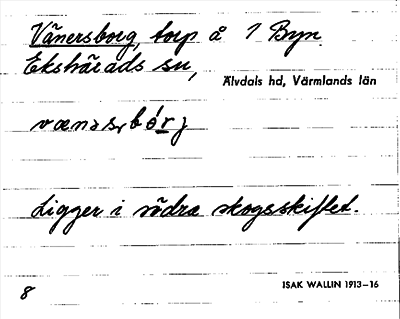 Vänersborg, torp å 1 Byn.
Ekshärads sn,
Älvdals hd, Värmlands län
Ligger i södra skogsskiftet.
8
ISAK WALLIN 1913–16